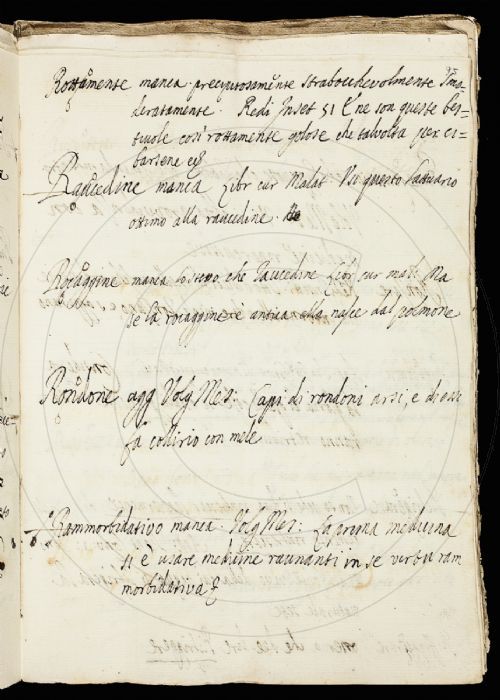 Rottamente manca precipitosamẽte strabocchevolmente Smo=
deratamente. Redi Inset 51 E ne son queste bes=
tiuole così rottamente golose che talvolta per ci=
barsene
Raucedine manca Libr cur Malat. Di questo lattuario
ottimo alla raucedine.
Rocaggine manca lo stesso che raucedine Libr cur mal. Ma
se la rocaggine è antica ella nasce dal polmone
Rondone agg Volg Mes: Capi di rondoni arsi, e di essi
fà collirio con mele
Rammorbidativo manca. Volg Mes: La prima medicina
si è usare medicine raunanti in se virtu ram
morbidativa